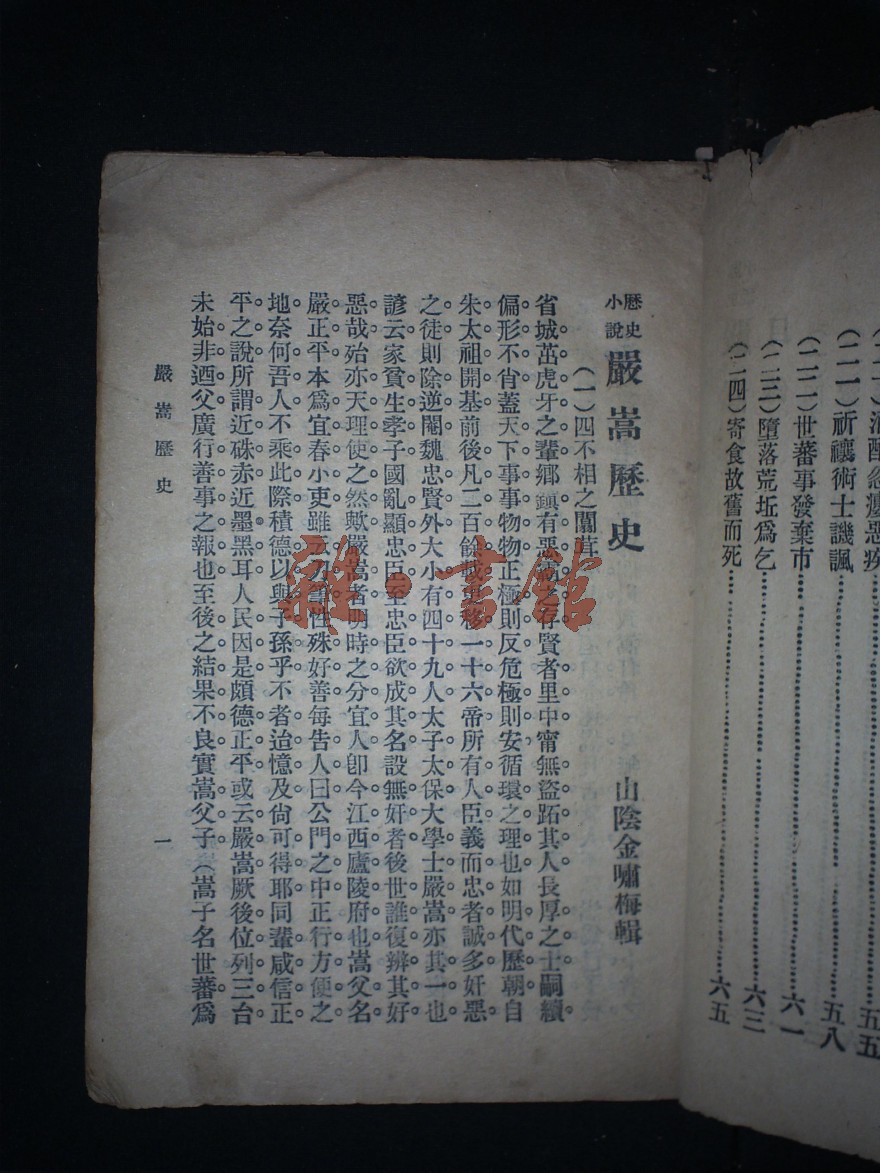 (二一)祈禳術士譏諷……五八
(二二)世蕃事發棄市……六一
(二三)墮落荒坵爲乞……六三
(二四)寄食故舊而死……六五
歷史小說 嚴嵩歷史 山陰金嘯梅輯
(一)四不相之闒茸
省城茁虎牙之輩鄉鎮有惡之存賢者里中甯無盜跖其人長厚之士嗣續
偏形不肖蓋天下事事物物正極則反危極則安循環之理也如明代歷朝自
朱太祖開基前後凡二百餘載更移一十六帝所有人臣義而忠者誠多奸惡
之徒則除逆閹魏忠賢外大小有四十九人太子太保大學士嚴嵩亦其一也
諺云家貧生孝子國亂顯忠臣至忠臣欲成其名設無奸者後世誰復辨其好
惡哉殆亦天理使之然歟嚴嵩者明時之分宜人卽今江西廬陵府也嵩父名
嚴正平本爲宜春小吏雖云刀筆性殊好善每告人曰公門之中正行方便之
地奈何吾人不乘此際積德以與子孫乎不者迨憶及尙可得耶同輩咸信正
平之說所謂近硃赤近墨黑耳人民因是頗德正平或云嚴嵩厥後位列三台
未始非迺父廣行善事之報也至後之結果不良實嵩父子(嵩子名世蕃爲
嚴嵩歷史 一
雜·書館